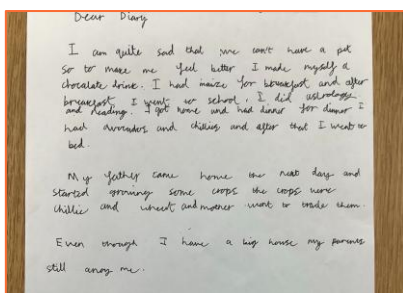 Dear Diary
I am quite sad that we can't have a pet
so to make me feel better I made myself a
chocalate drink. I had maize for breakfast and after
breakfast I went to school, I did astrology
and reading. I got home and had dinner for dinner I
had avocados and chillies and after that I went to
bed.
My father came home the next day and
started growing some crops the crops were
chillie and wheat and mother went to trade them.
Even though I have a big house my parents
still anoy me.